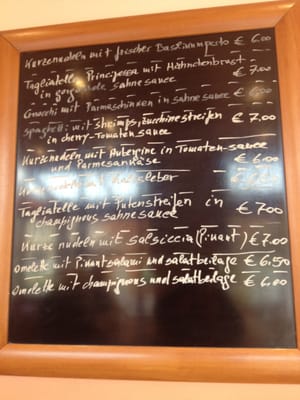 Kurzenudeln mit frischer Basilikumpesto € 6.00
Tagliatelle Principessa mit Hähnchenbrust
in gorgonzole sahnesauce € 7.00
Gnocchi mit Parmaschinken in sahnesauce €
spaghetti mit shrimps, zucchinestreifen € 7.00
in cherry-Tomatensauce
Kurznudeln mit Aubergine in Tomaten-sauce
und Parmesankäse € 6.00
mit
Tagliatelle mit Putenstreifen in
champignons sahnesauce € 7.00
Kurze nudeln mit salsiccia (Pikant) € 7.00
Omelette mit Pikantsalami und salatbeilage € 6.50
Omelette mit champignons und salatbeilage € 6.00